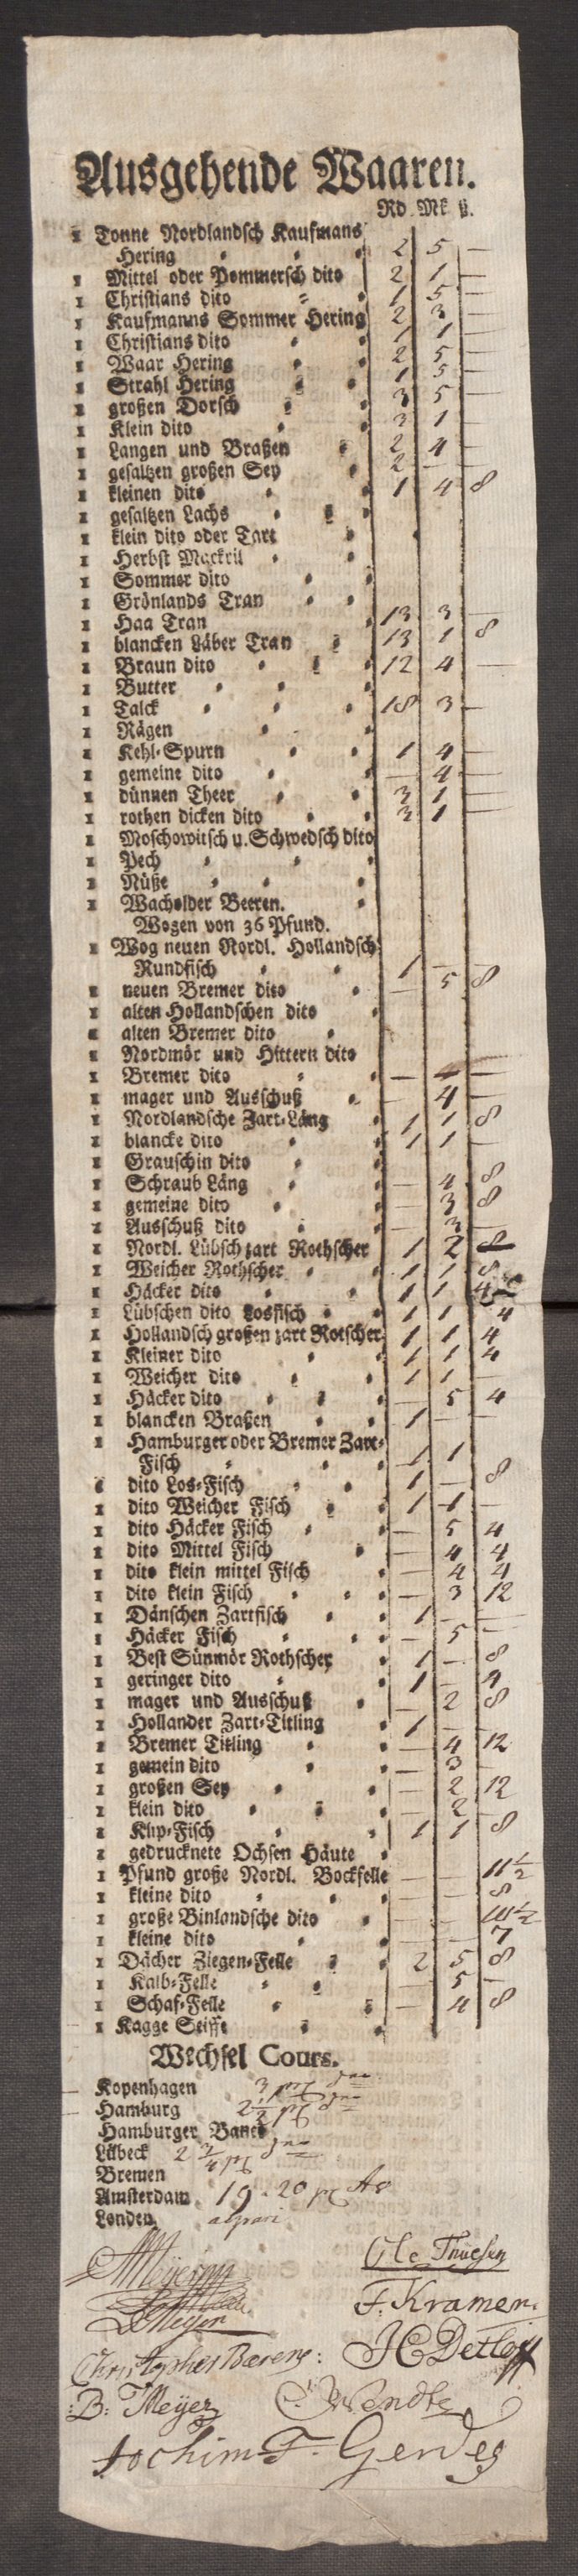 Ausgehende Waaren.
Rd. Mk ß.
1 Tonne Nordlandsch Kaufmans
Hering 2 5 —
1 Mittel oder Pommersch dito 2 1 —
1 Christians dito 1 5 —
1 Kaufmanns Sommer Hering 2 3 —
1 Christians dito 1 1 —
1 Waar Hering 2 5 —
1 Strahl Hering 1 5 —
1 großen Dorsch 3 5 —
1 Klein dito 3 1 —
1 Langen und Braßen 2 4 —
1 gesaltzen großen Sey 2 — —
1 kleinen dito 1 4 8
1 gesaltzen Lachs
1 klein dito oder Tart
1 Herbst Mackril
1 Sommer dito
1 Grönlands Tran
1 Haa Tran 13 3 —
1 blancken Läber Tran 13 1 8
1 Braun dito 12 4 —
1 Butter
1 Talck 18 3 —
1 Rägen
1 Kehl-Spurn 1 4 —
1 gemeine dito — 4 —
1 dünnen Theer 3 1 —
1 rothen dicken dito 3 1 —
1 Moschowitsch u. Schwedsch dito
1 Pech
1 Nüße
1 Wacholder Beeren.
Wogen von 36 Pfund.
1 Wog neuen Nordl. Hollandsch
Rundfisch 1 — —
1 neuen Bremer dito — 5 8
1 alten Hollandschen dito
1 alten Bremer dito
1 Nordmör und Hittern dito
1 Bremer dito — — —
1 mager und Ausschuß — 4 —
1 Nordlandsche Zart-Läng 1 1 8
1 blancke dito 1 1 —
1 Grauschin dito
1 Schraub Läng — 4 8
1 gemeine dito — 3 8
1 Ausschuß dito — 3 —
1 Nordl. Lübsch zart Rothscher 1 2
1 Weicher Rothscher 1 1 8
1 Häcker dito 1 1
1 Lübschen dito Losfisch 1 1 4
1 Hollandsch großen zart Rotscher 1 1 4
1 Kleiner dito 1 1 4
1 Weicher dito 1 1 —
1 Häcker dito — 5 4
1 blancken Braßen 1 — —
1 Hamburger oder Bremer Zart-
Fisch 1 1
1 dito Los-Fisch 1 — 8
1 dito Weicher Fisch 1 1 —
1 dito Häcker Fisch — 5 4
1 dito Mittel Fisch — 4 4
1 dito klein mittel Fisch — 4 4
1 dito klein Fisch — 3 12
1 Dänschen Zartfisch 1 — —
1 Häcker Fisch — 5 —
1 Best Sünmör Rothscher 1 — 8
1 geringer dito 1 — 4
1 mager und Ausschuß — 2 8
1 Hollander Zart-Titling 1 —
1 Bremer Titling — 4 12
1 gemein dito — 3 —
1 großen Sey — 2 12
1 klein dito — 2 —
1 Klip-Fisch 1 1 8
1 gedrucknete Ochsen Häute
1 Pfund große Nordl. Bockfelle — — 11½
1 kleine dito — — 8
1 große Binlandsche dito — — 10½
1 kleine dito — — 7
1 Dächer Ziegen-Felle 2 5 8
1 Kalb-Felle — 5 —
1 Schaf-Felle — 4 8
1 Kagge Seiffe
Wechsel Cours.
Kopenhagen 3
Hamburg 2½
Hamburger Banco
Lübeck 2¾
Bremen
Amsterdam 19 · 20
London alpari
Ole Thuesen
F. Kramer.
Meyer
Christopher Berens:
J C Detloff
B: Meyer
Wendte
Jochim F. Gerdes